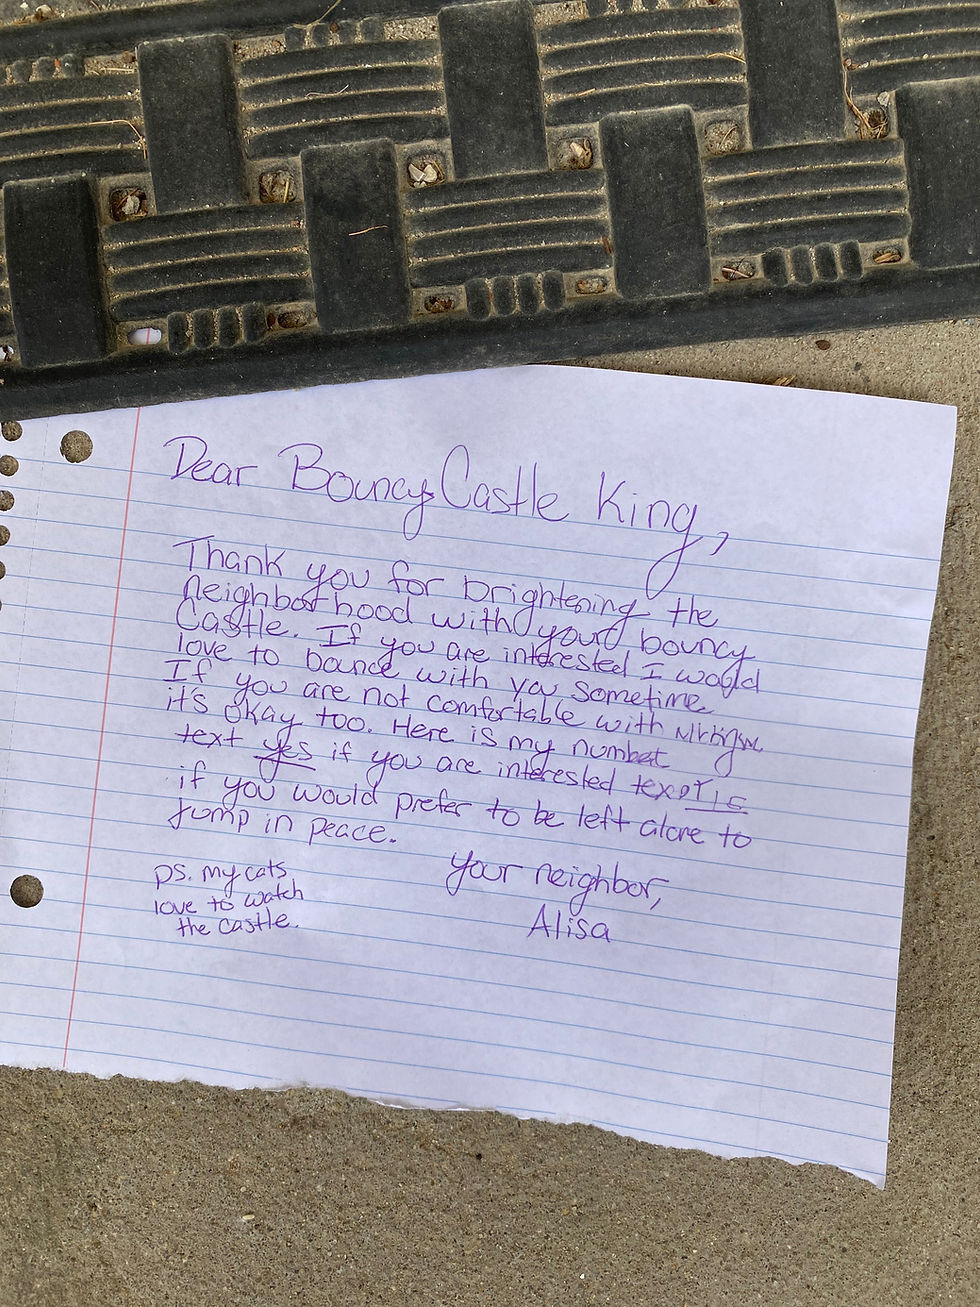 Dear Bouncy Castle King,
Thank you for brightening the
neighborhood with your bouncy
Castle. If you are interested I would
love to bounce with you sometime
If you are not comfortable with
it's okay too. Here is my number
text yes if you are interested text
if you would prefer to be left alone to
Jump in peace.
your neighbor,
Alisa
ps. my cats
love to watch
the castle.